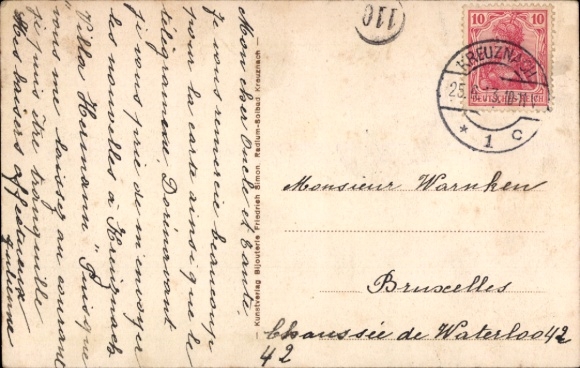 Mon cher Oncle et Tante
Je vous remercie beaucoup
pour la carte ainsi que le
télégramme Dorénavant
je vous prie de m'envoyer
les nouvelles à Kreuznach
Villa Herman" Puisque
vous me laissez au courant
je puis être tranquille
Mes baisers affectueux
Kunstverlag Bijouterie Friedrich Simon, Radium-Solbad Kreuznach
110
10 10
DEUTSCHES REICH
KREUZNACH
25.
* 1 c
Monsieur Warnken
Bruxelles
Chaussée de Waterloo 42
42